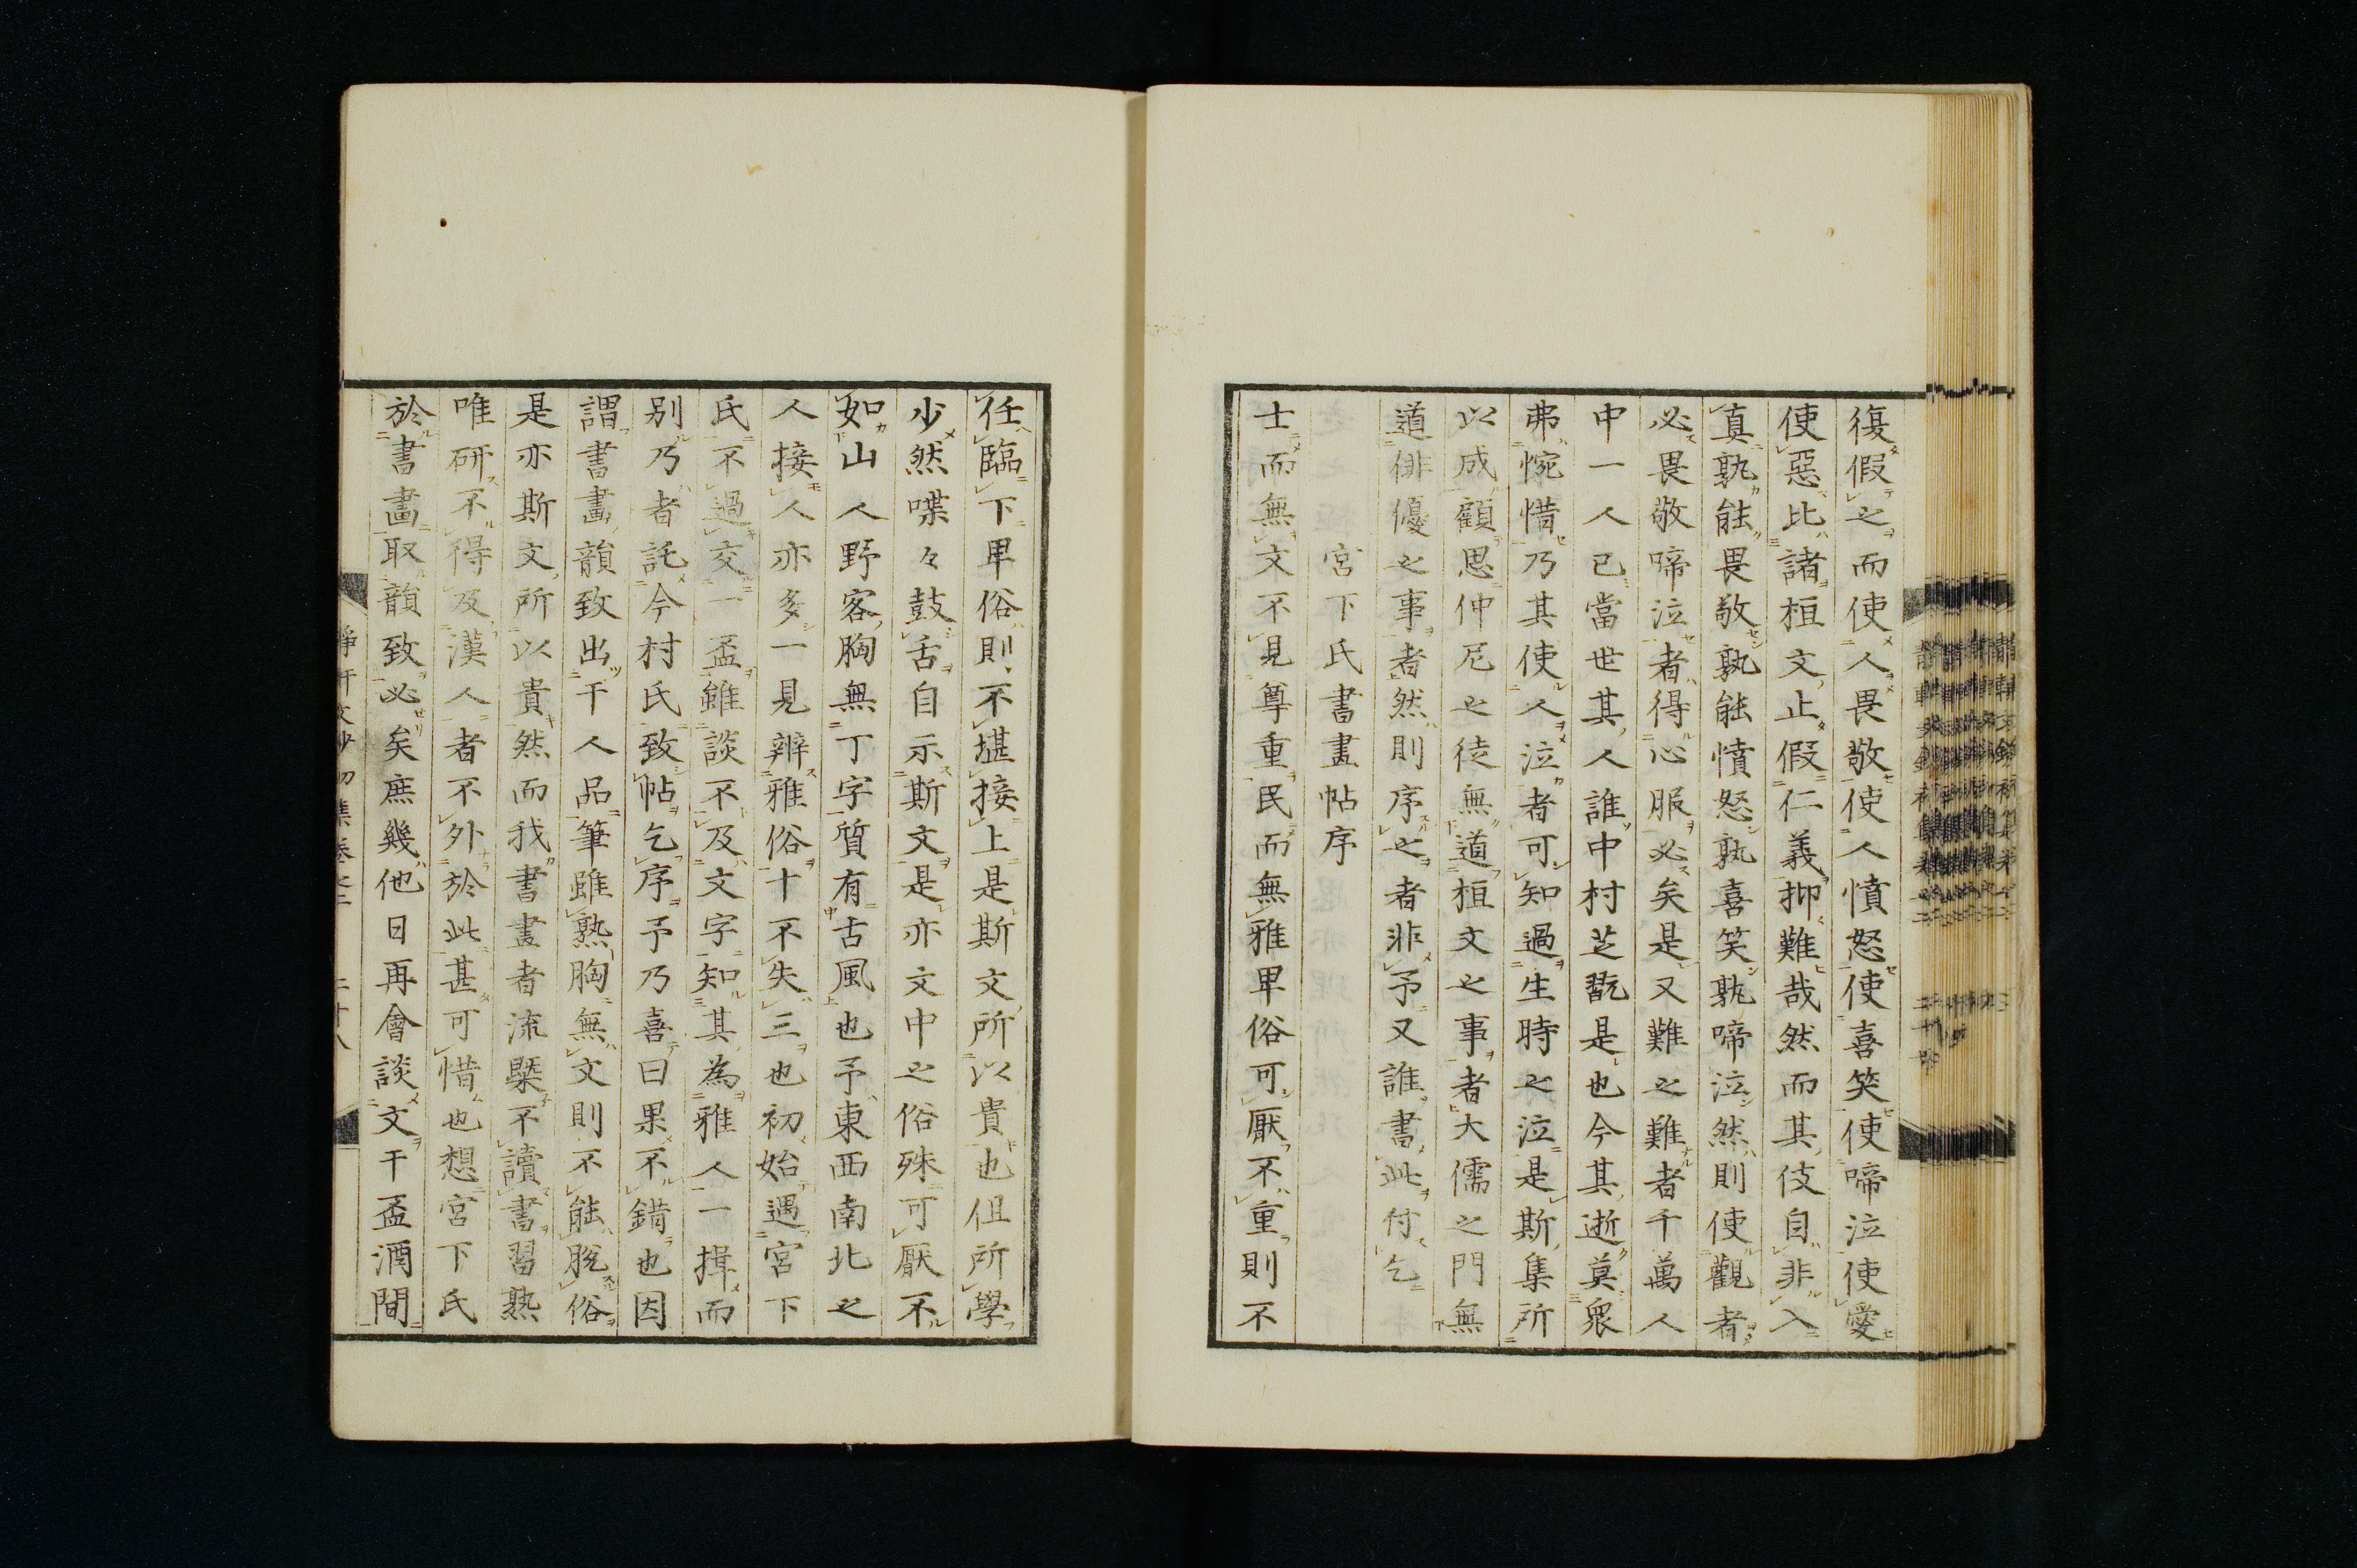 復假之而使人畏敬使人憤怒使喜笑使啼泣使愛
使惡比諸桓文止假仁義抑難哉然而其伎自非入
真孰能畏敬孰能憤怒孰喜笑孰啼泣然則使觀者
必畏敬啼泣者得心服必矣是又難之難者千萬人
中一人已當世其人誰中村芝翫是也今其逝莫衆
弗惋惜乃其使人泣者可知過生時之泣是斯集所
以成顧思仲尼之徒無道桓文之事者大儒之門無
道俳優之事者然則序之者非予又誰書此付乞
宮下氏書畫帖序
士而無文不見尊重民而無雅卑俗可厭不重則不
任臨下卑俗則不堪接上是斯文所以貴也但所學
少然喋々鼓舌自示斯文是亦文中之俗殊可厭不
如山人野客胸無丁字質有古風也予東西南北之
人接人亦多一見辨雅俗十不失三也初始遇宮下
氏不過交一盃雖談不及文字知其為雅人一揖而
別乃者託今村氏致帖乞序予乃喜曰果不錯也因
謂書畫韻致出于人品筆雖熟胸無文則不能脫俗
是亦斯文所以貴然而我書畫者流槩不讀書習熟
唯研不得及漢人者不外於此甚可惜也想宮下氏
於書畫取韻致必矣庶幾他日再會談文于盃酒間
靜軒文鈔初集卷之三 二十八